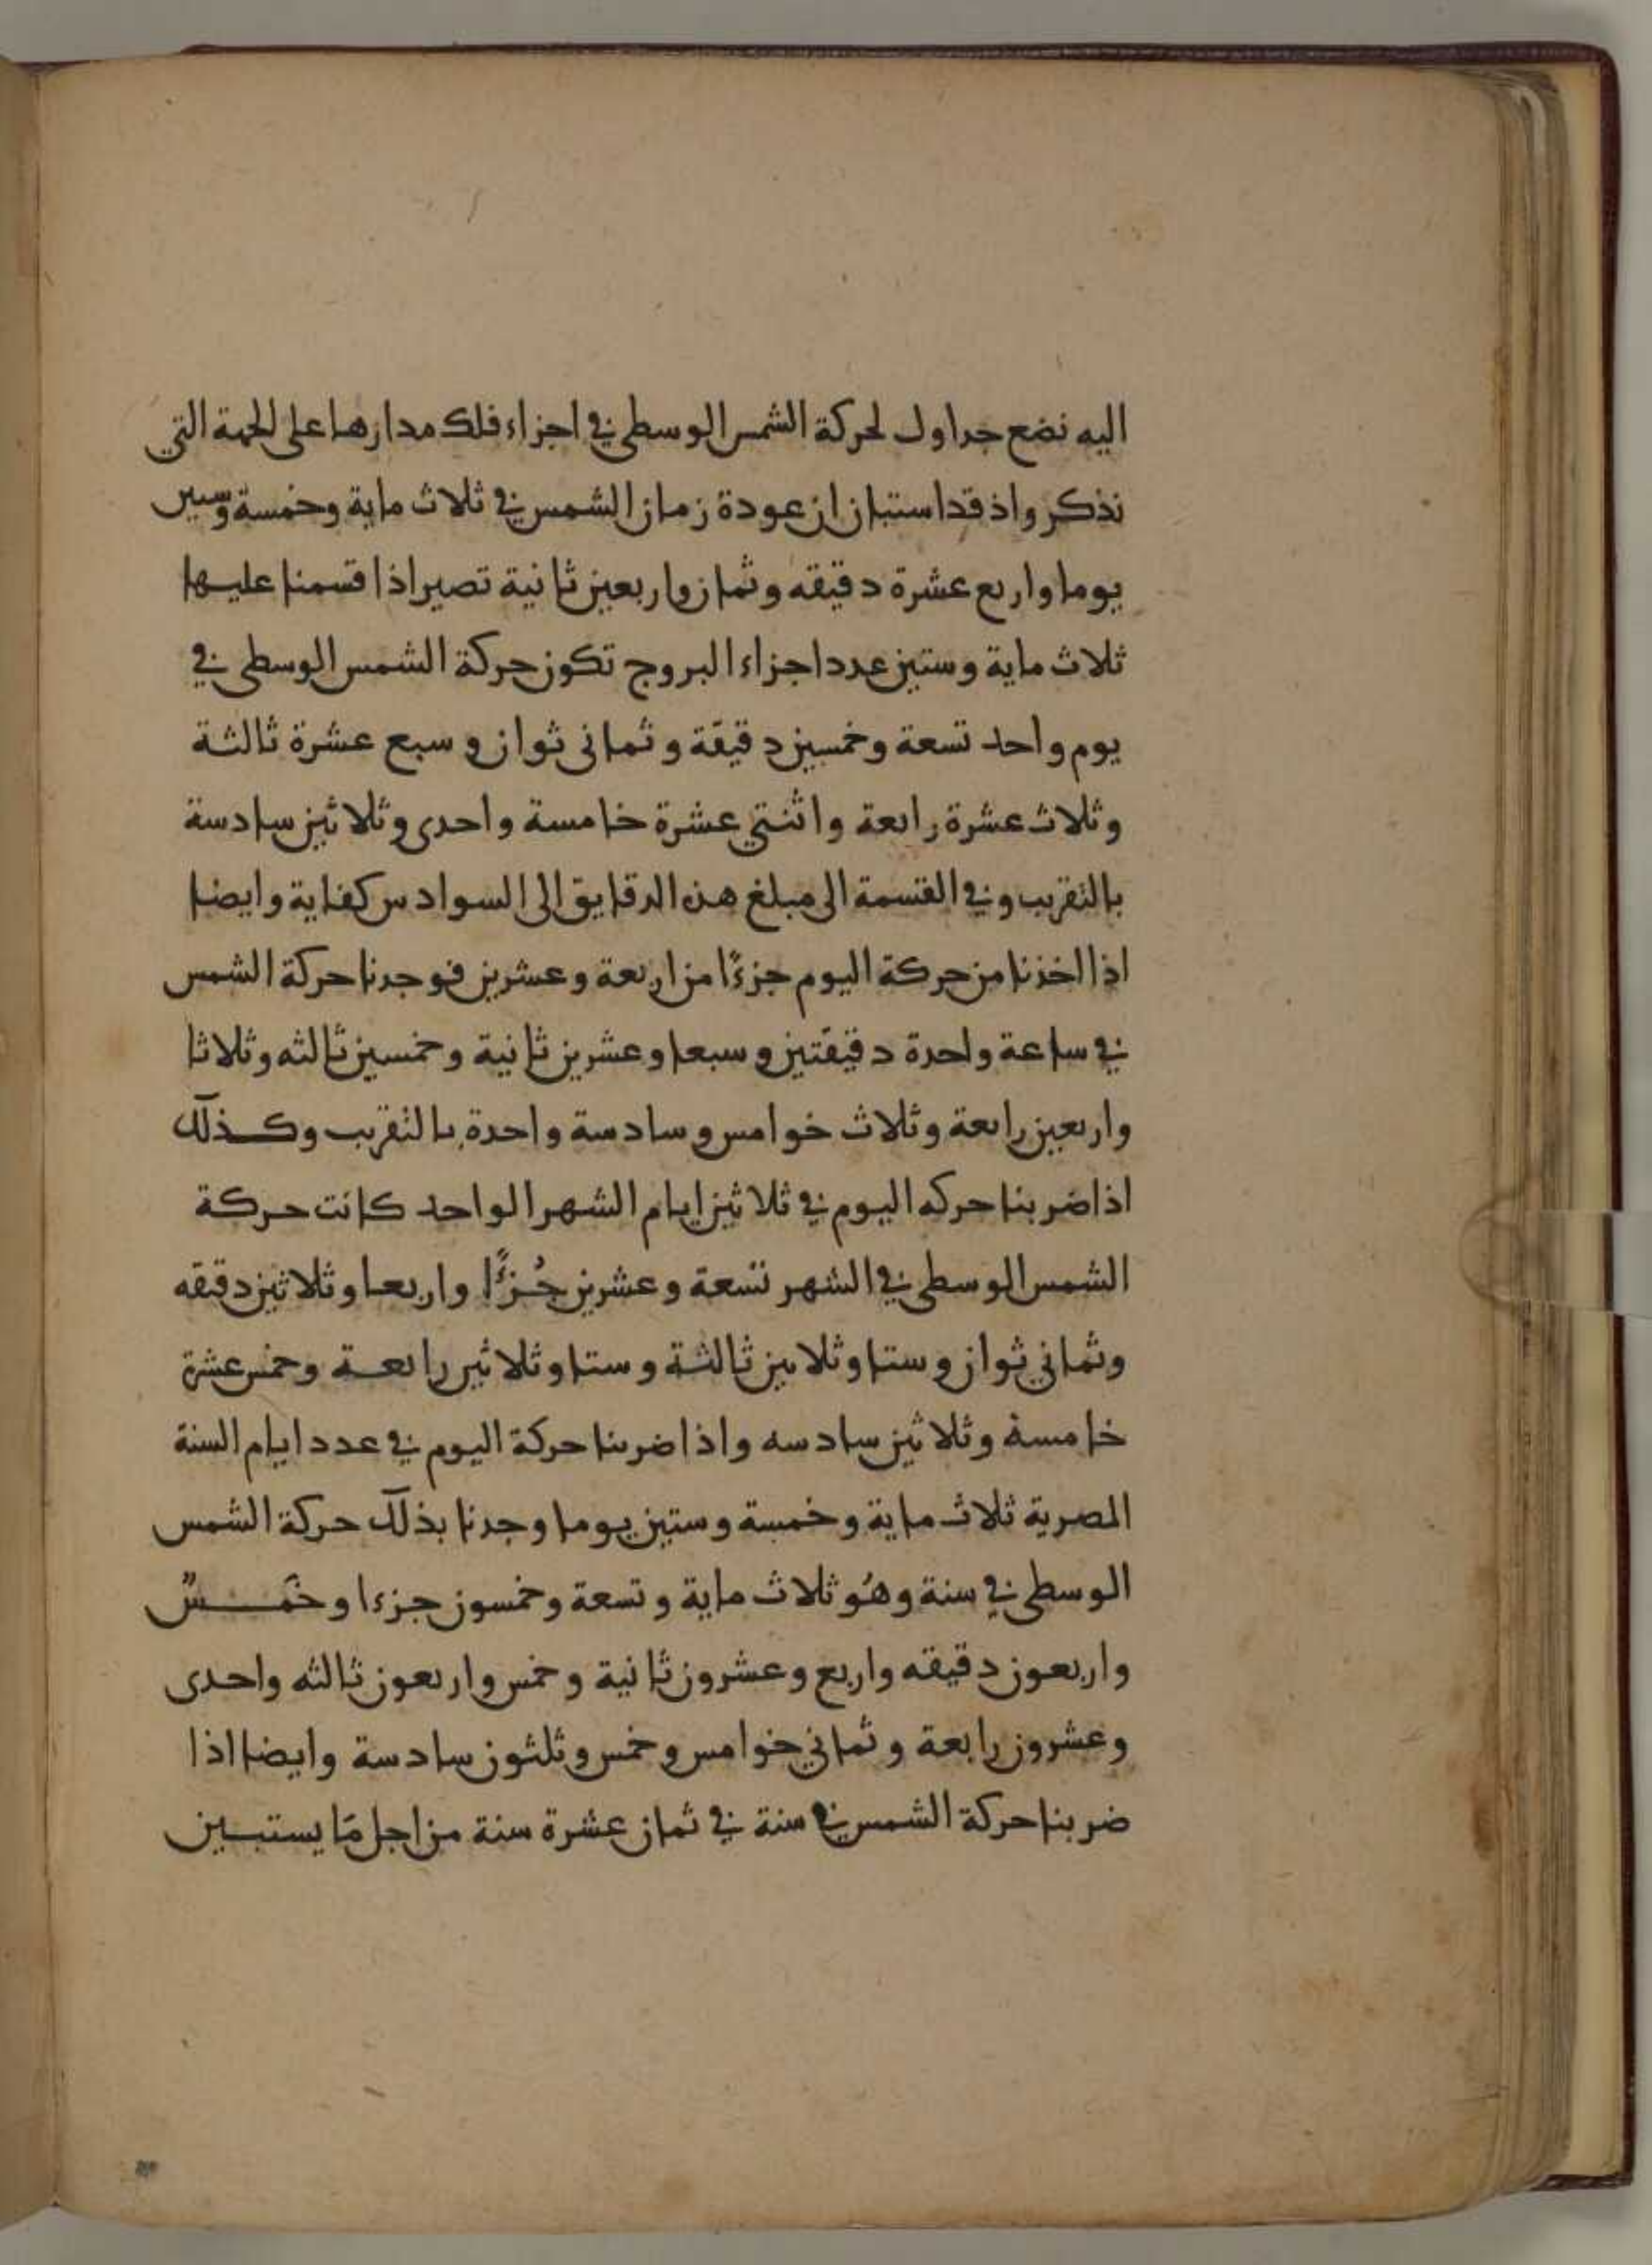 اليه نضع جداول لحركة الشمس الوسطى في اجزاء فلك مدارها على الجهة التي
نذكر واذ قد استبان ان عودة زمان الشمس في ثلاث ماية وخمسة وستين
يوما واربع عشرة دقيقه وثمان واربعين ثانية تصير اذا قسمنا عليها
ثلاث ماية وستين عدد اجزاء البروج تكون حركة الشمس الوسطى في
يوم واحد تسعة وخمسين دقيقة وثماني ثوان وسبع عشرة ثالثة
وثلاث عشرة رابعة واثنتي عشرة خامسة واحدى وثلاثين سادسة
بالتقريب وفي القسمة الى مبلغ هذه الدقايق الى السوادس كفاية وايضا
اذا اخذنا من حركة اليوم جزءًا من اربعة وعشرين فوجدنا حركة الشمس
في ساعة واحدة دقيقتين وسبعا وعشرين ثانية وخمسين ثالثه وثلاثا
واربعين رابعة وثلاث خوامس وسادسة واحدة بالتقريب وكذلك
اذا ضربنا حركه اليوم في ثلاثين ايام الشهر الواحد كانت حركة
الشمس الوسطى في الشهر تسعة وعشرين جُزءًا واربعا وثلاثين دقيقه
وثماني ثوان وستا وثلاثين ثالثة وستا وثلاثين رابعة وخمس عشرة
خامسة وثلاثين سادسه واذا ضربنا حركة اليوم في عدد ايام السنة
المصرية ثلاث ماية وخمسة وستين يوما وجدنا بذلك حركة الشمس
الوسطى في سنة وهُو ثلاث ماية وتسعة وخمسون جزءا وخَمسٌ
واربعون دقيقه واربع وعشرون ثانية وخمس واربعون ثالثه واحدى
وعشرون رابعة وثماني خوامس وخمس وثلثون سادسة وايضا اذا
ضربنا حركة الشمس في سنة في ثمان عشرة سنة من اجل مَا يستبين